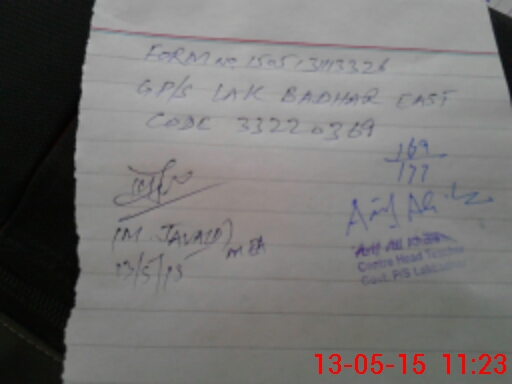 FORM no. 150513013326
GP/S LAK BADHAR EAST
CODE 33220369
169
177
(M. JAVAID) MEA
13/5/15
Arif Ali Khan
Centre Head Teacher
Govt. P/S Lak
13-05-15 11:23